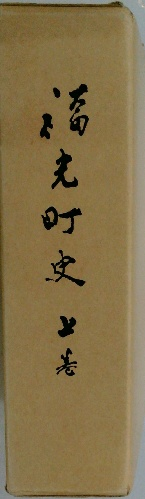 福光町史 上巻